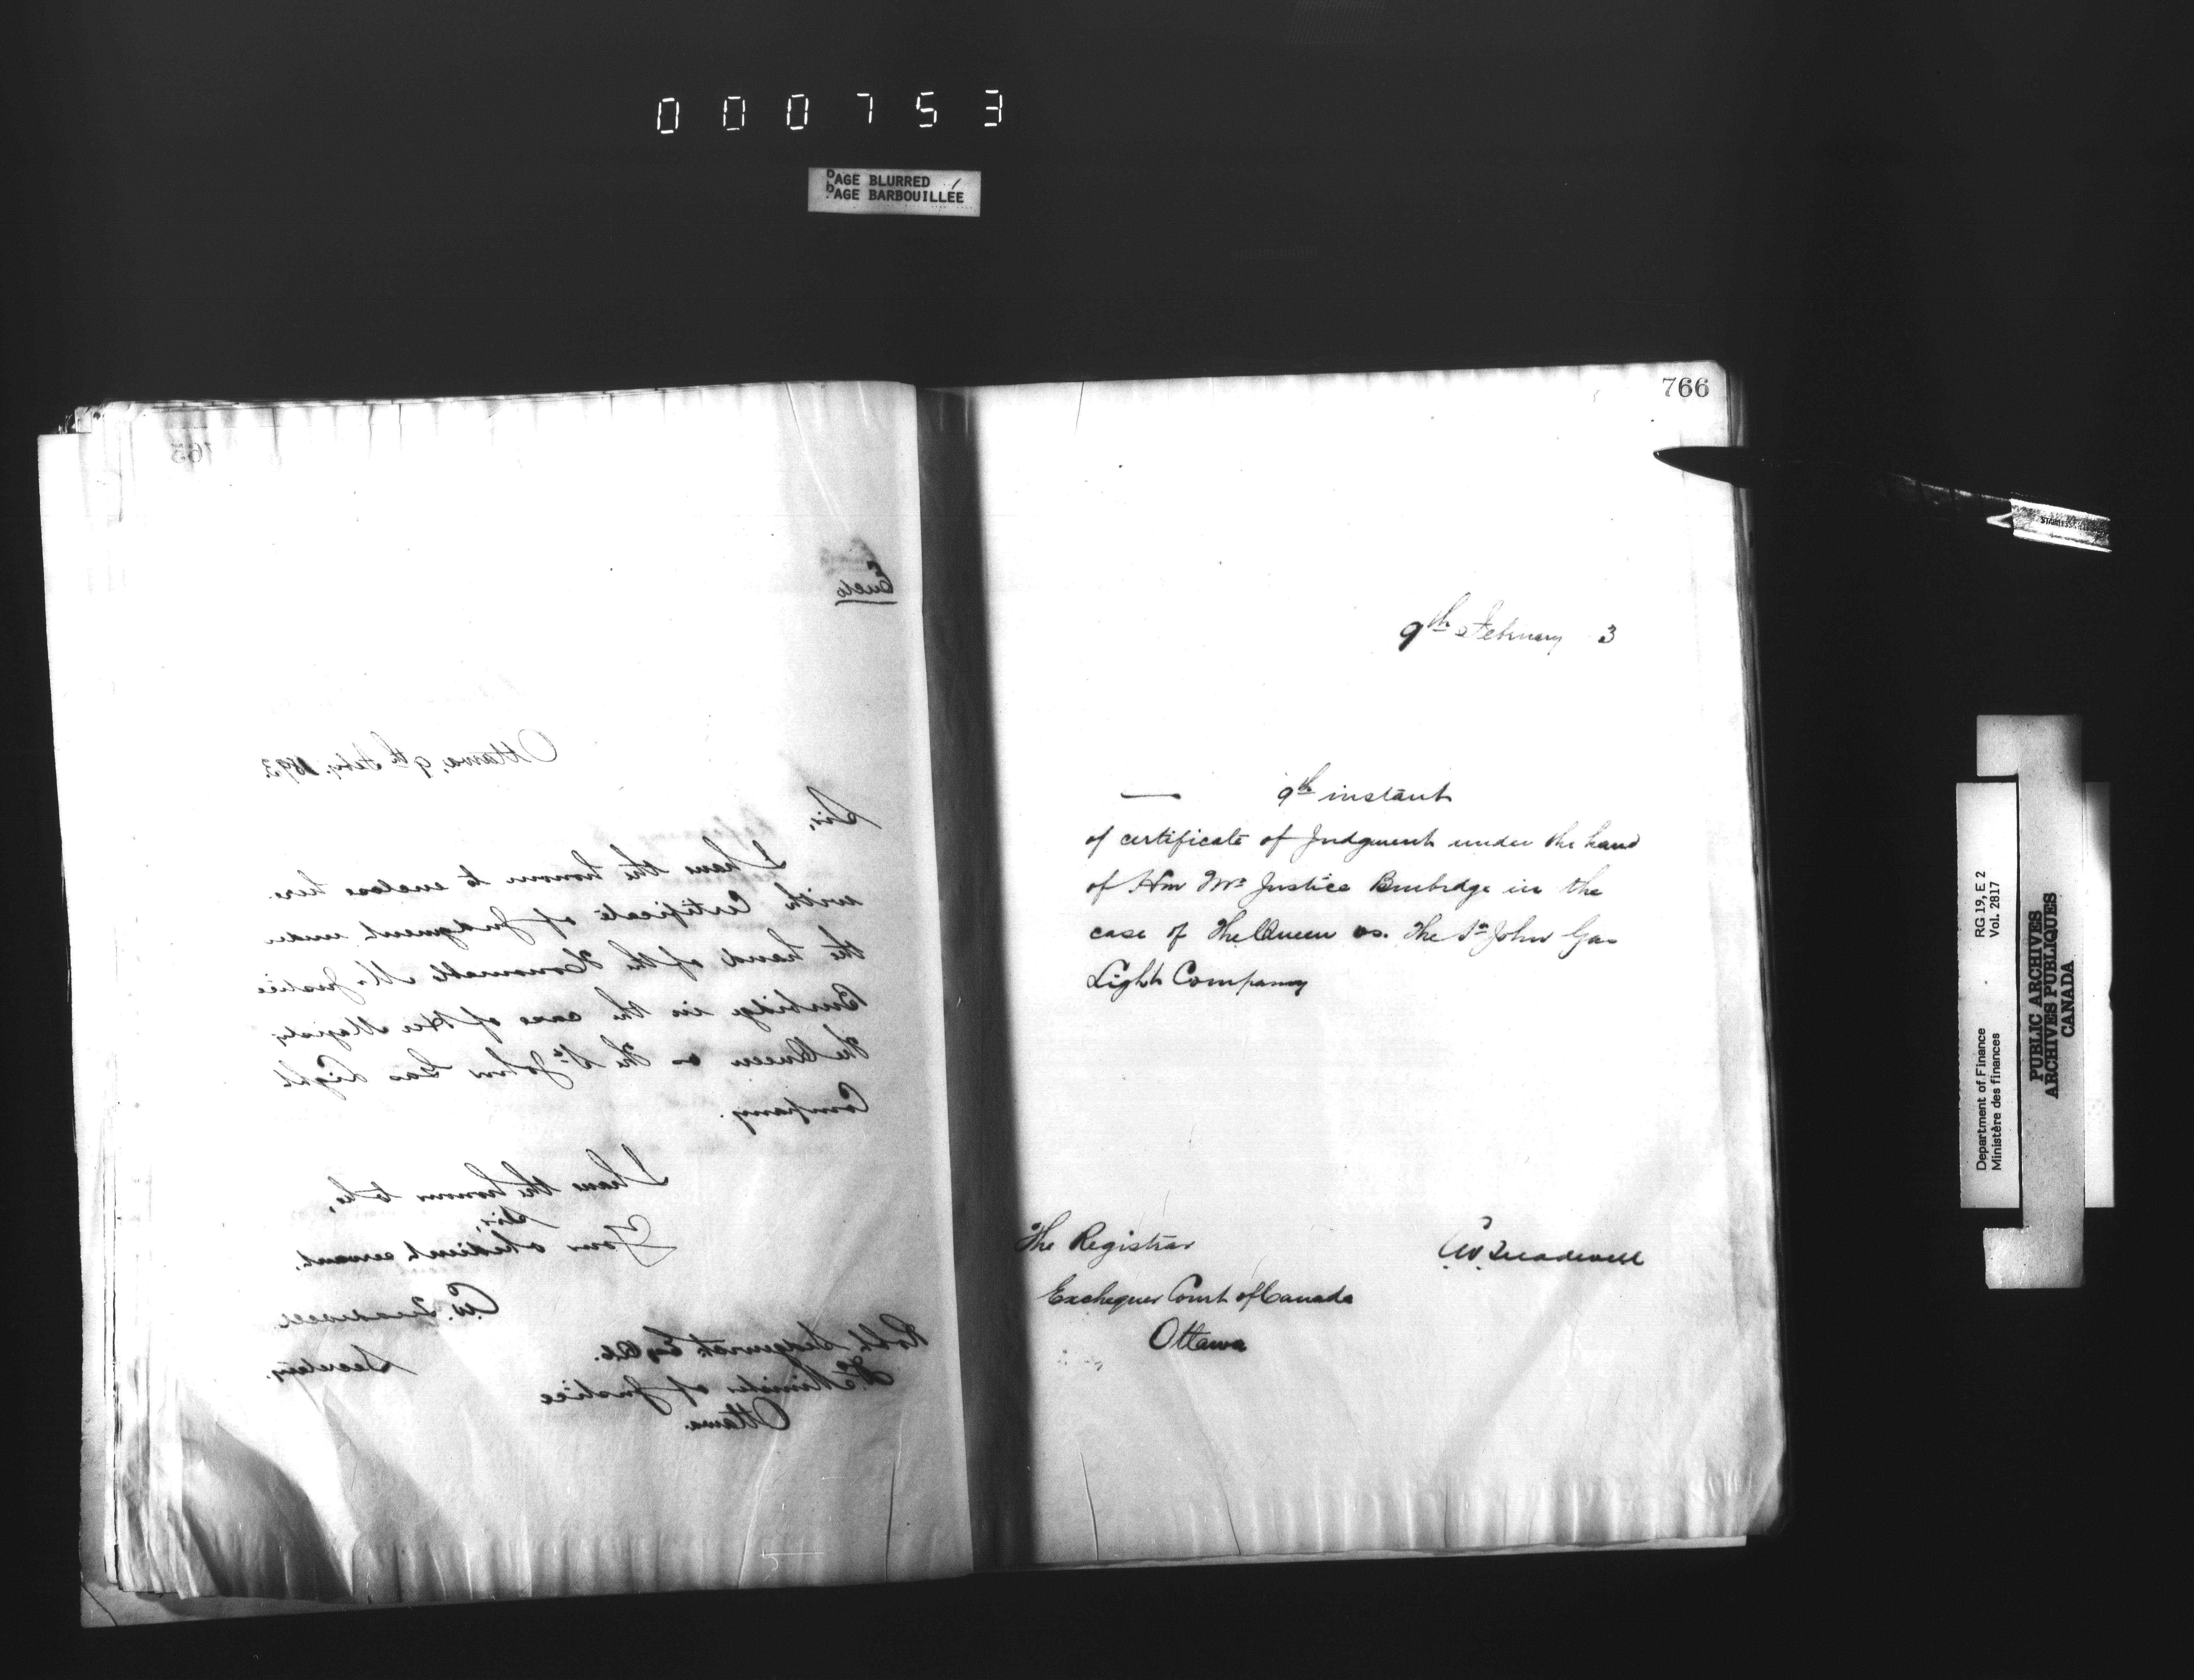 0 0 0 7 5 3
PAGE BLURRED
PAGE BARBOUILLÉE
765
Encls
Ottawa, 9th Feby. 1893
Sir,
I have the honour to enclose here-
with Certificate of Judgment under
the hand of the Honourable Mr Justice
Burbidge in the case of Her Majesty
The Queen vs The St John Gas Light
Company.
I have the honour to be,
Sir,
Your obedient servant,
C.W. Treadwell
Secretary.
Robt Sedgewick Esq Q.C.
D. Minister of Justice
Ottawa.
766
9th February 3
— 9th instant
of certificate of Judgment under the hand
of Hon Mr Justice Burbidge in the
case of The Queen vs. The St John Gas
Light Company
C.W. Treadwell
The Registrar
Exchequer Court of Canada
Ottawa
STAINLESS
Department of Finance RG 19, E 2
Ministère des finances Vol. 2817
PUBLIC ARCHIVES
ARCHIVES PUBLIQUES
CANADA